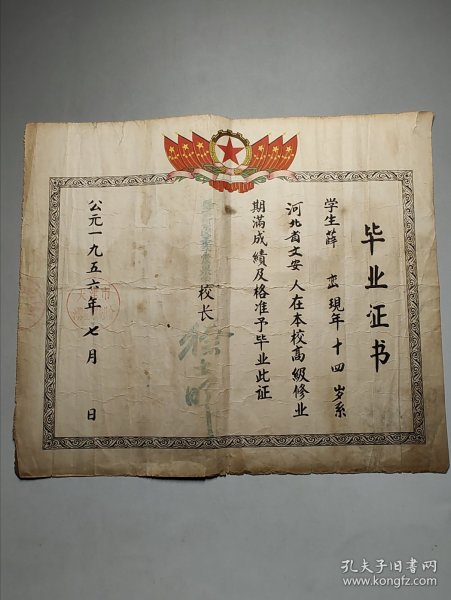 毕业证书
学生薛 现年十四岁系
河北省文安人在本校高級修业
期滿成績及格准予毕业此证
校长
公元一九五六年七月 日
孔夫子旧书网
www.kongfz.com